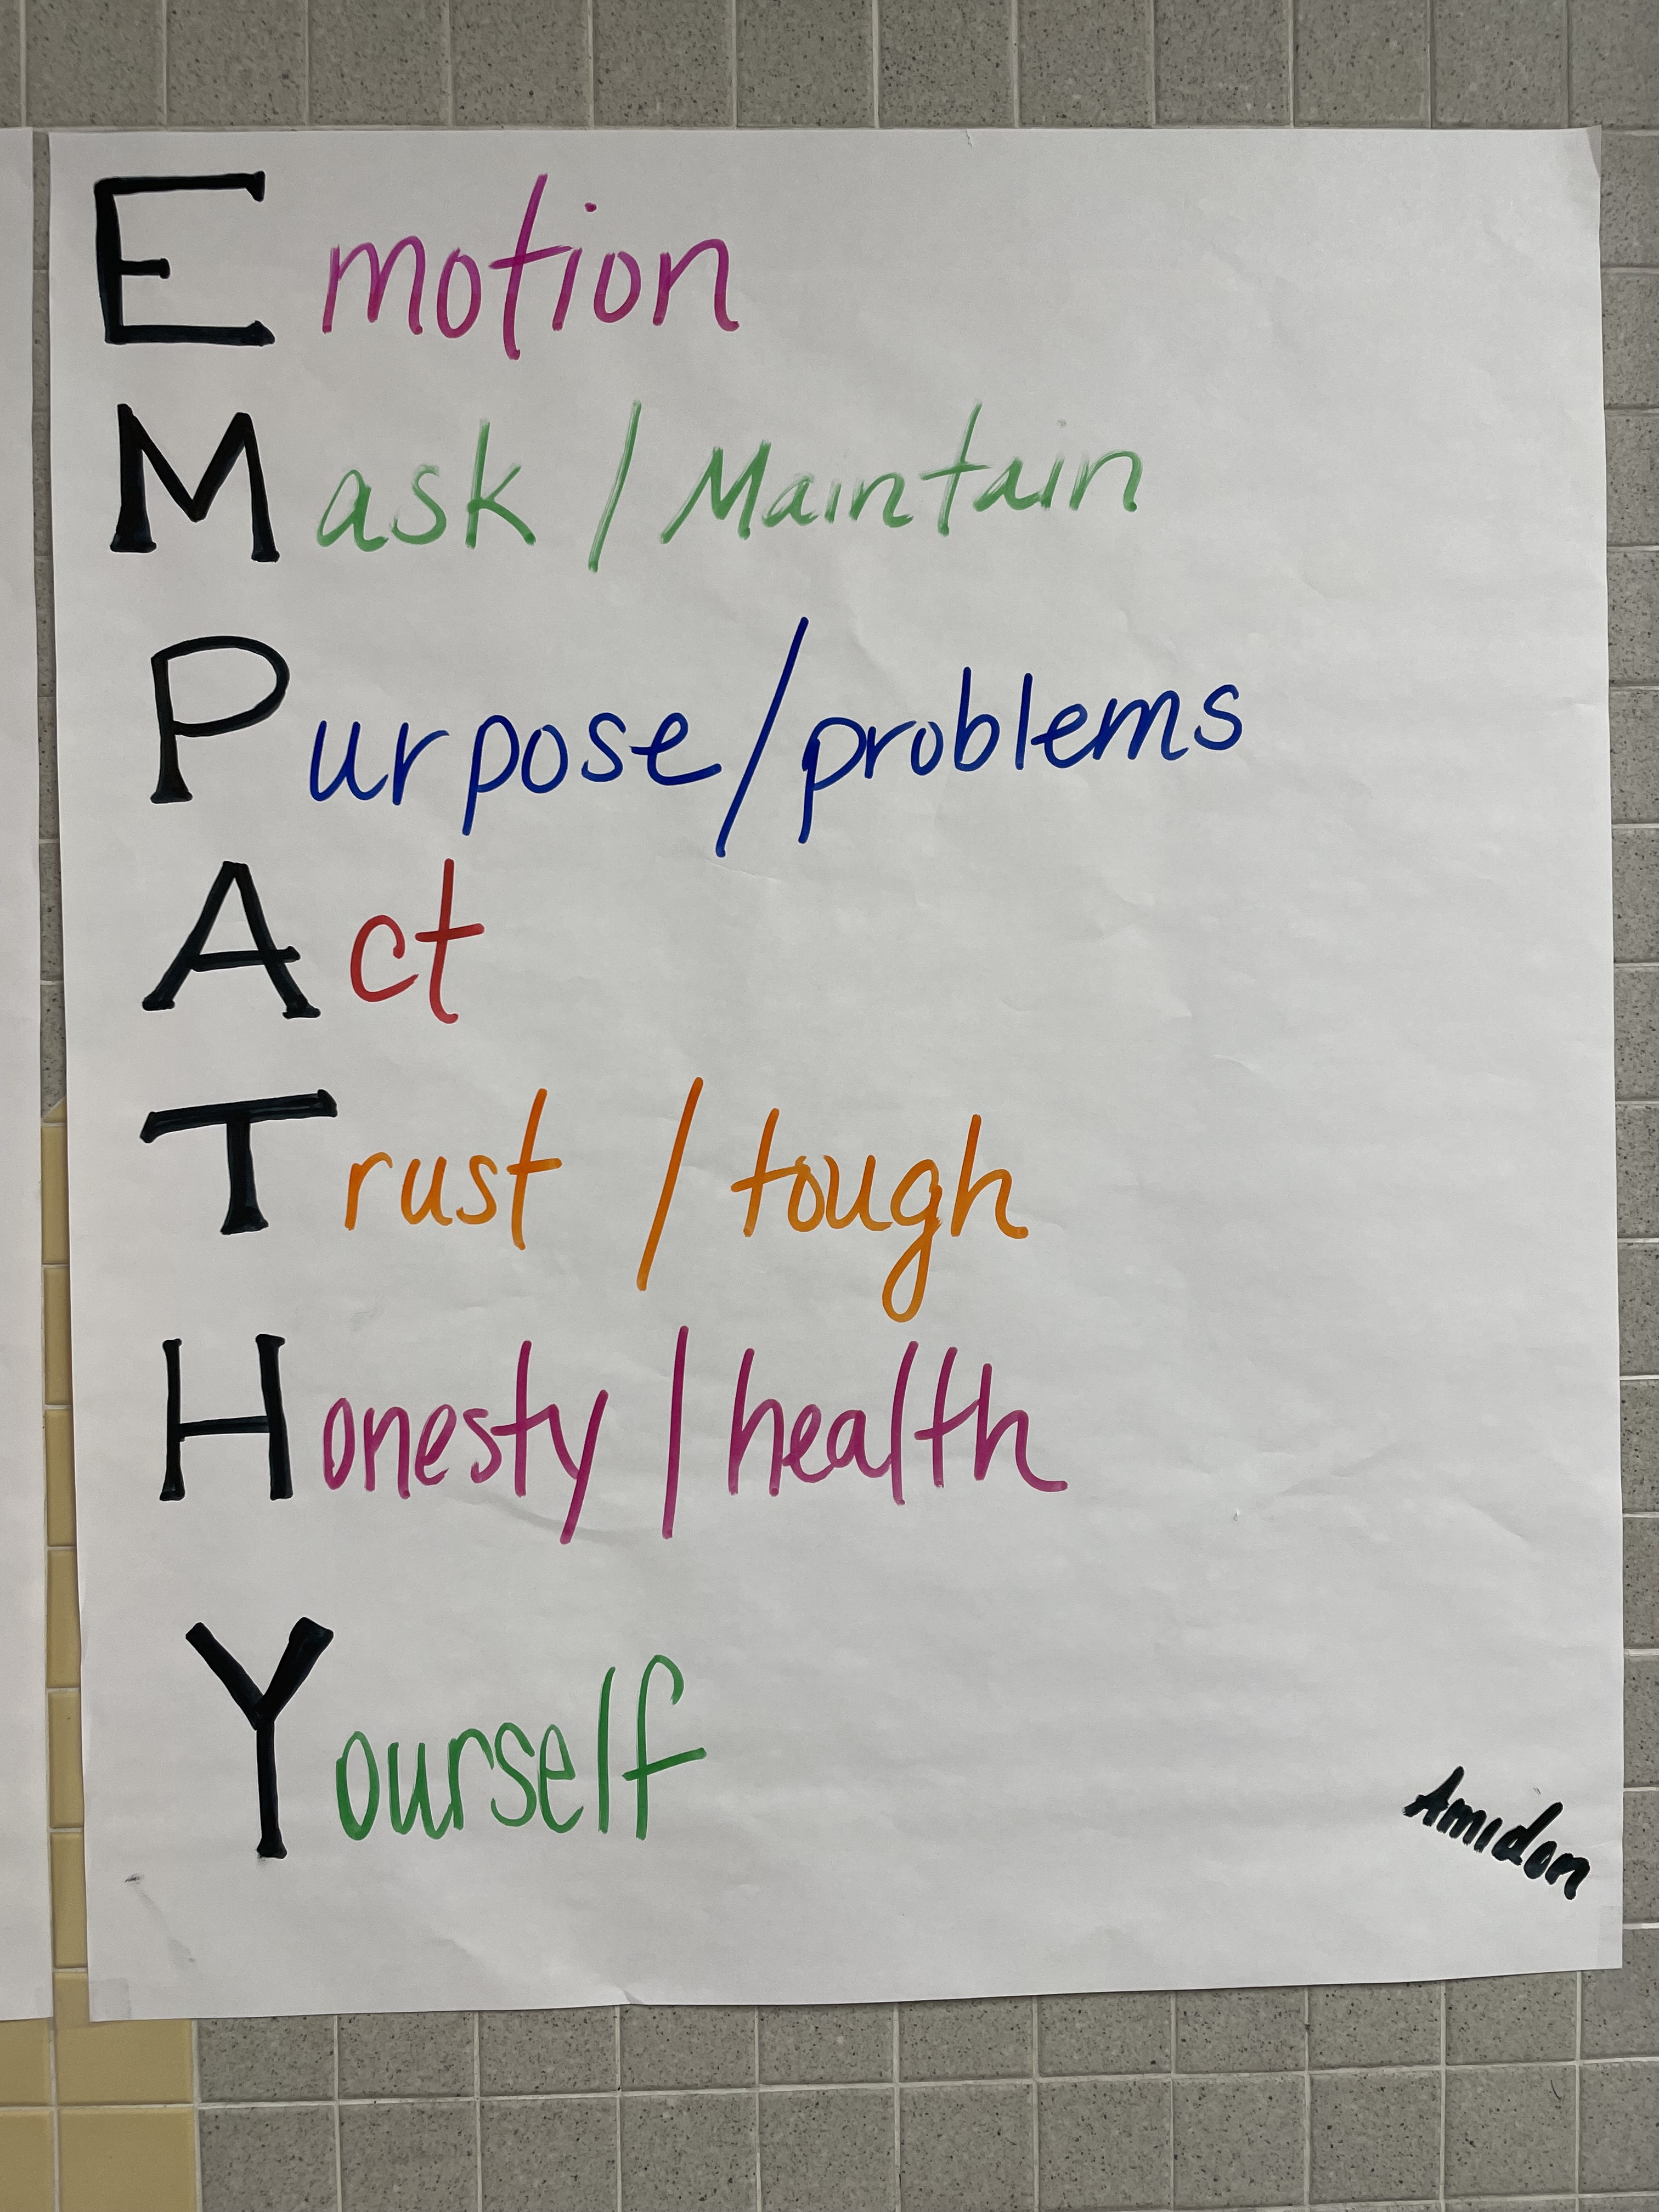 Emotion
Mask / Maintain
Purpose/problems
Act
Trust / tough
Honesty / health
Yourself
Amidon